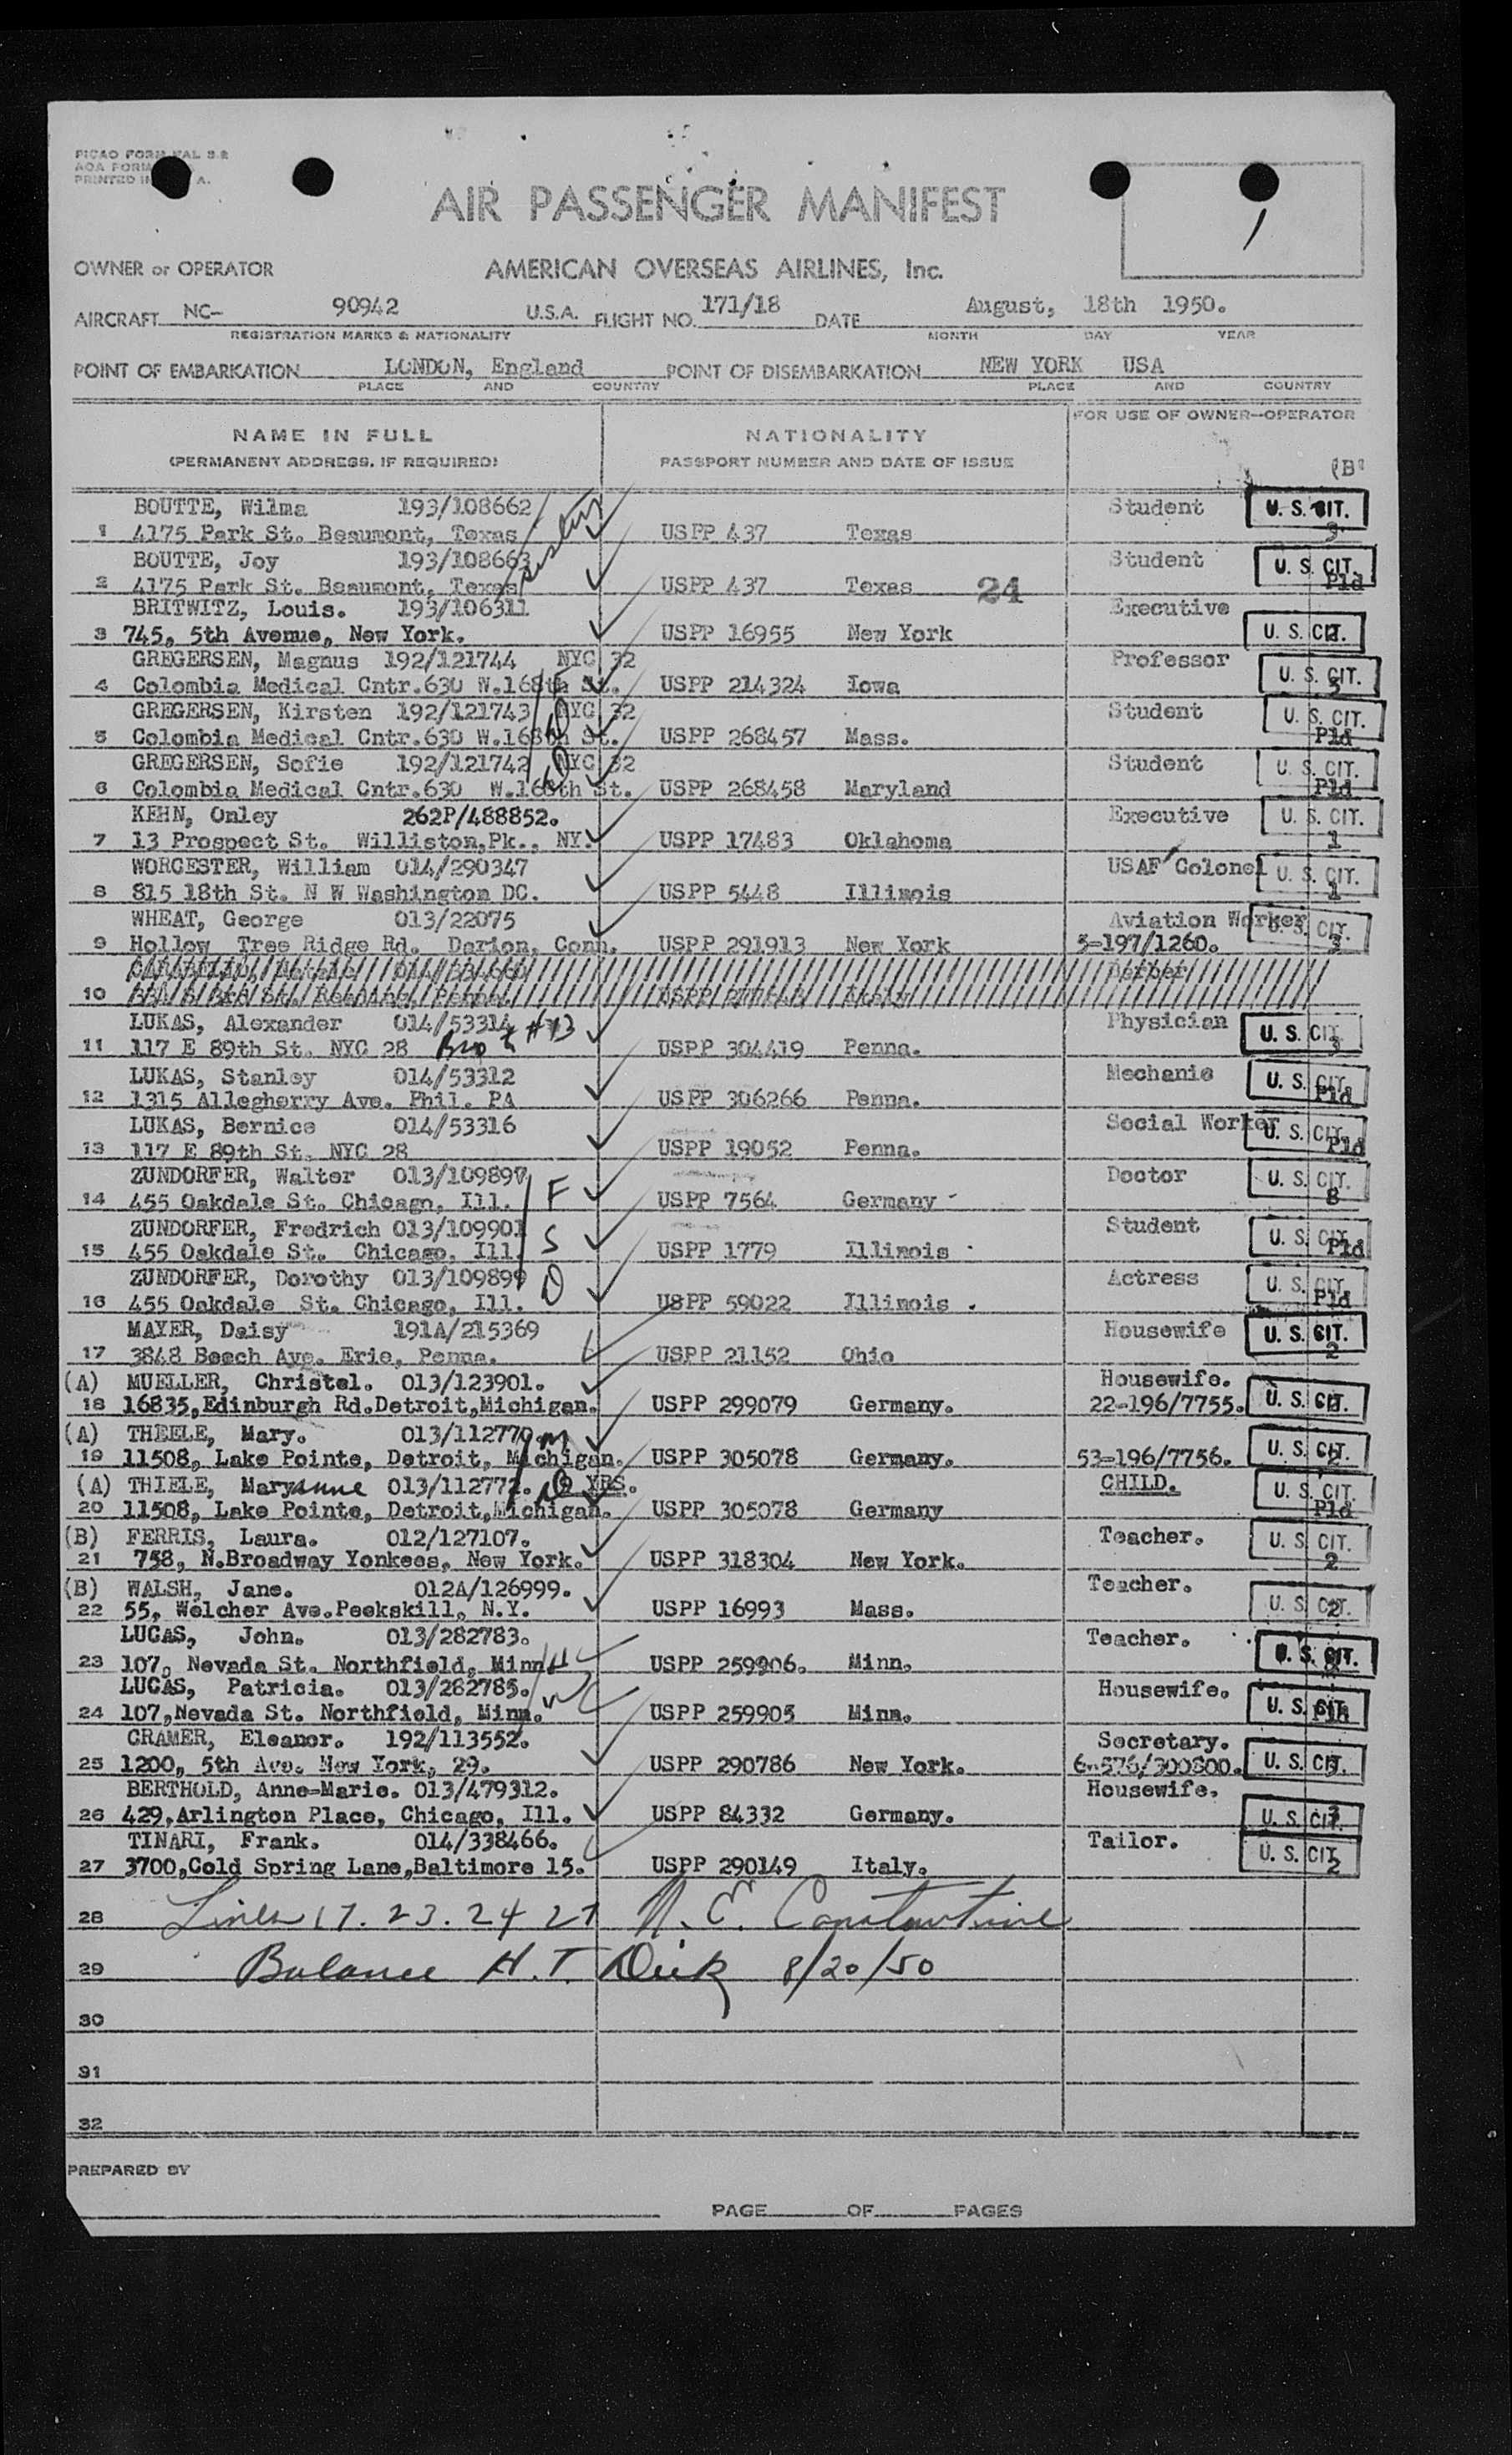 AIR PASSENGER MANIFEST
1
OWNER or OPERATOR AMERICAN OVERSEAS AIRLINES, Inc.
AIRCRAFT NC- 90942 U.S.A. FLIGHT NO. 171/18 DATE August, 18th 1950.
REGISTRATION MARKS & NATIONALITY MONTH DAY YEAR
POINT OF EMBARKATION LONDON, England POINT OF DISEMBARKATION NEW YORK USA
PLACE AND COUNTRY PLACE AND COUNTRY
NAME IN FULL NATIONALITY FOR USE OF OWNER—OPERATOR
(PERMANENT ADDRESS, IF REQUIRED) PASSPORT NUMBER AND DATE OF ISSUE
BOUTTE, Wilma 193/108662 Student U. S. CIT.
1 4175 Park St. Beaumont, Texas USPP 437 Texas
BOUTTE, Joy 193/108663 sisters Student U. S. CIT.
2 4175 Park St. Beaumont, Texas USPP 437 Texas 24 Pld
BRITWITZ, Louis. 193/106311 Executive
3 745, 5th Avenue, New York. USPP 16955 New York U. S. CIT.
GREGERSEN, Magnus 192/121744 NYC 32 Professor
4 Colombia Medical Cntr.630 W.168th St. USPP 214324 Iowa U. S. CIT.
GREGERSEN, Kirsten 192/121743 NYC 32 D Student U. S. CIT.
5 Colombia Medical Cntr.630 W.168th St. USPP 268457 Mass. Pld
GREGERSEN, Sofie 192/121742 NYC 32 D Student U. S. CIT.
6 Colombia Medical Cntr.630 W.168th St. USPP 268458 Maryland Pld
KEHN, Onley 262P/488852. Executive U. S. CIT.
7 13 Prospect St. Williston,Pk., NY. USPP 17483 Oklahoma 1
WORCESTER, William 014/290347 USAF Colonel U. S. CIT.
8 815 18th St. N W Washington DC. USPP 5448 Illinois 1
WHEAT, George 013/22075 Aviation Worker U. S. CIT.
9 Hollow Tree Ridge Rd. Darion, Conn. USPP 291913 New York 5-197/1260. 3
Barber
10
LUKAS, Alexander 014/53314 #13 Physician U. S. CIT.
11 117 E 89th St. NYC 28 Bro USPP 304419 Penna. 3
LUKAS, Stanley 014/53312 Mechanic U. S. CIT.
12 1315 Allegherry Ave. Phil. PA USPP 306266 Penna. Pld
LUKAS, Bernice 014/53316 Social Worker U. S. CIT.
13 117 E 89th St. NYC 28 USPP 19052 Penna. Pld
ZUNDORFER, Walter 013/109897 F Doctor U. S. CIT.
14 455 Oakdale St. Chicago, Ill. USPP 7564 Germany 8
ZUNDORFER, Fredrich 013/109901 S Student U. S. CIT.
15 455 Oakdale St. Chicago, Ill. USPP 1779 Illinois Pld
ZUNDORFER, Dorothy 013/109899 D Actress U. S. CIT.
16 455 Oakdale St. Chicago, Ill. USPP 59022 Illinois . Pld
MAYER, Daisy 191A/215369 Housewife U. S. CIT.
17 3848 Beech Ave. Erie, Penna. USPP 21152 Ohio 2
(A) MUELLER, Christel. 013/123901. Housewife.
18 16835,Edinburgh Rd.Detroit,Michigan. USPP 299079 Germany. 22-196/7755. U. S. CIT.
(A) THEELE, Mary. 013/112770. M
19 11508, Lake Pointe, Detroit, Michigan. USPP 305078 Germany. 53-196/7756. U. S. CIT.
(A) THIELE, Maryanne 013/112772. D YRS. CHILD. U. S. CIT.
20 11508, Lake Pointe, Detroit,Michigan. USPP 305078 Germany Pld
(B) FERRIS, Laura. 012/127107. Teacher. U. S. CIT.
21 758, N.Broadway Yonkees, New York. USPP 318304 New York. 2
(B) WALSH, Jane. 012A/126999. Teacher.
22 55, Welcher Ave.Peekskill, N.Y. USPP 16993 Mass. U. S. CIT.
LUCAS, John. 013/282783. Teacher.
23 107, Nevada St. Northfield, Minn. H USPP 259906. Minn. U. S. CIT.
LUCAS, Patricia. 013/282785. W Housewife.
24 107,Nevada St. Northfield, Minn. USPP 259905 Minn. U. S. CIT.
CRAMER, Eleanor. 192/113552. Secretary.
25 1200, 5th Ave. New York, 29. USPP 290786 New York. U. S. CIT.
BERTHOLD, Anne-Marie. 013/479312. Housewife.
26 429,Arlington Place, Chicago, Ill. USPP 84332 Germany. U. S. CIT.
TINARI, Frank. 014/338466. Tailor.
27 3700,Cold Spring Lane,Baltimore 15. USPP 290149 Italy. U. S. CIT. 2
28 Lines 17. 23. 24 27 N. E. Constantine
29 Balance H. T. Dick 8/20/50
30
31
32
PREPARED BY
PAGE OF PAGES